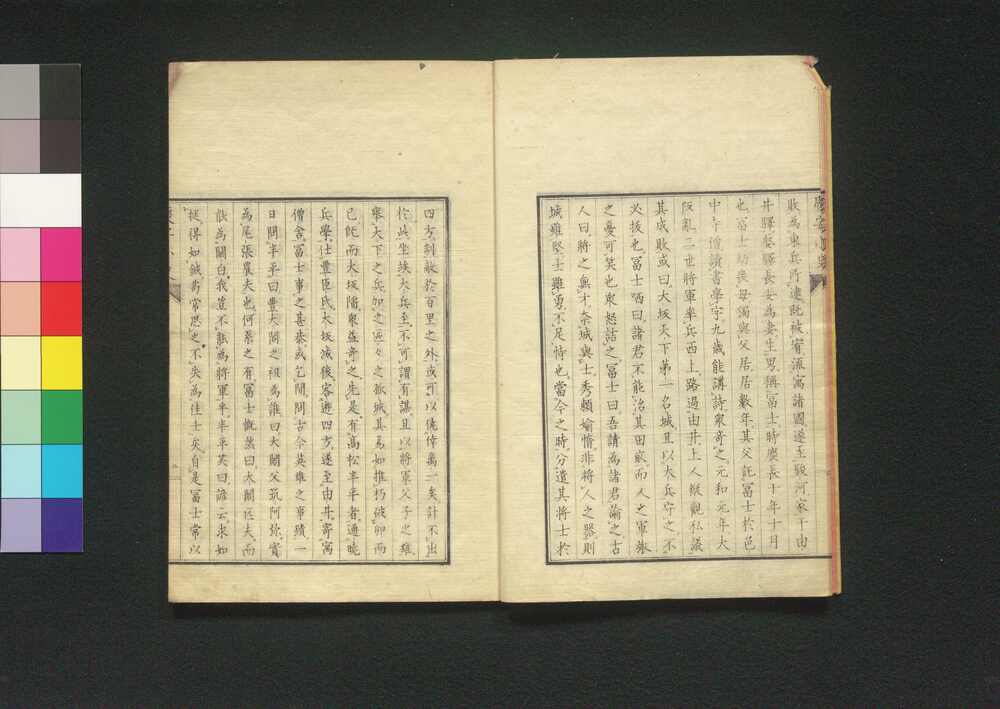 敗為東兵所逮既被宥流寓諸國遂至駿河家于由
井驛娶驛長女為妻生男稱冨士時慶長十年十月
也冨士幼喪母獨與父居居數年其父託冨士於邑
中寺僧讀書學字九歲能講詩衆奇之元和元年大
阪亂二世將軍率兵西上路過由井上人縱觀私議
其成敗或曰大坂天下第一名城且以大兵守之不
必拔也冨士哂曰諸君不能治其田畝而人之軍旅
之憂可笑也衆怒詰之冨士曰吾請為諸君論之古
人曰將之無才奈城與士秀頼婾惰非將人之器則
城雖堅士雖勇不足恃也當今之時分遣其將士於
四方刻敵於百里之外或可以僥倖萬一矣計不出
於此坐竢大兵至不可謂有謀且以將軍父子之雄
舉天下之兵加之區々之孤城其易如推朽破卵而
已既而大坂陷衆益奇之先是有髙松半平者通曉
兵學仕豊臣氏大坂滅後客遊四方遂至由井寄寓
僧舍冨士事之甚恭或乞閒問古今英雄之事蹟一
日問半平曰豊太閤之祖為誰曰太閤父筑阿弥實
為尾張農夫也何系之有冨士慨然曰太閤匹夫而
能為關白我豈不能為將軍乎半平笑曰諺云求如
挺得如鍼苟常思之不失為佳士矣自是冨士常以